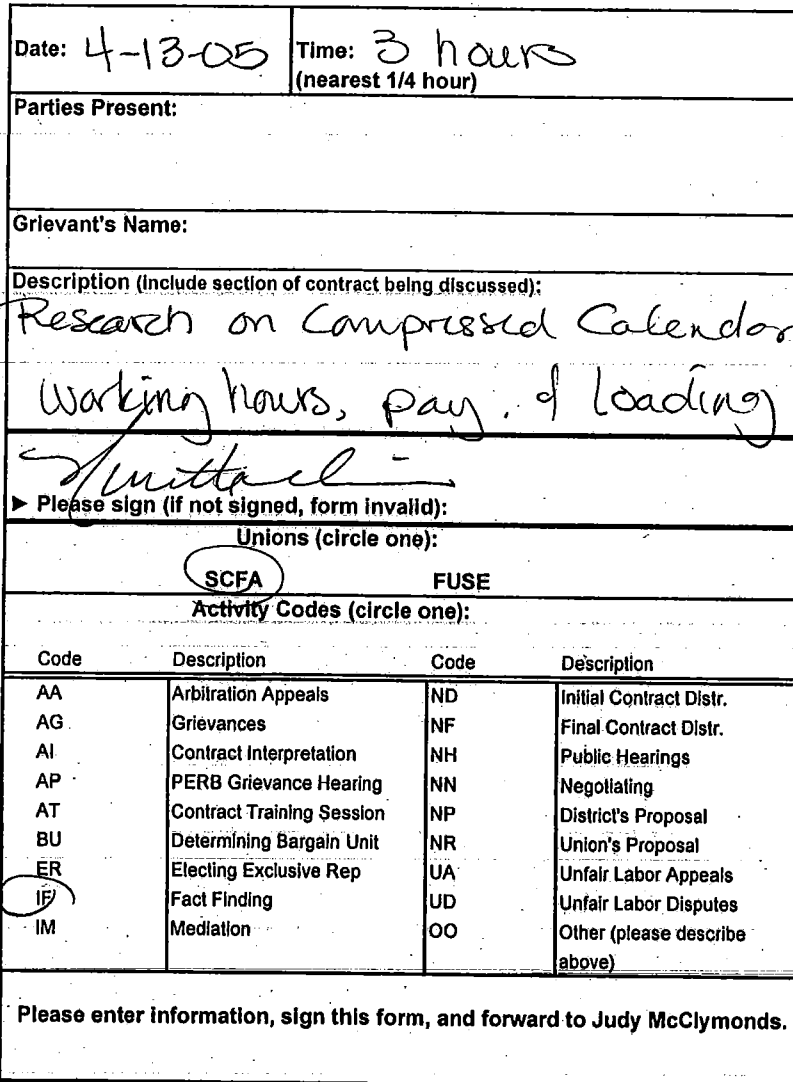 Date: 4-13-05 Time: 3 hours
(nearest 1/4 hour)
Parties Present:
Grievant's Name:
Description (include section of contract being discussed):
Research on Compressed Calendar
working hours, pay, & loading
► Please sign (if not signed, form invalid):
Unions (circle one):
SCFA FUSE
Activity Codes (circle one):
Code Description Code Description
AA Arbitration Appeals ND Initial Contract Distr.
AG Grievances NF Final Contract Distr.
AI Contract Interpretation NH Public Hearings
AP PERB Grievance Hearing NN Negotiating
AT Contract Training Session NP District's Proposal
BU Determining Bargain Unit NR Union's Proposal
ER Electing Exclusive Rep UA Unfair Labor Appeals
IF Fact Finding UD Unfair Labor Disputes
IM Mediation OO Other (please describe
above)
Please enter information, sign this form, and forward to Judy McClymonds.